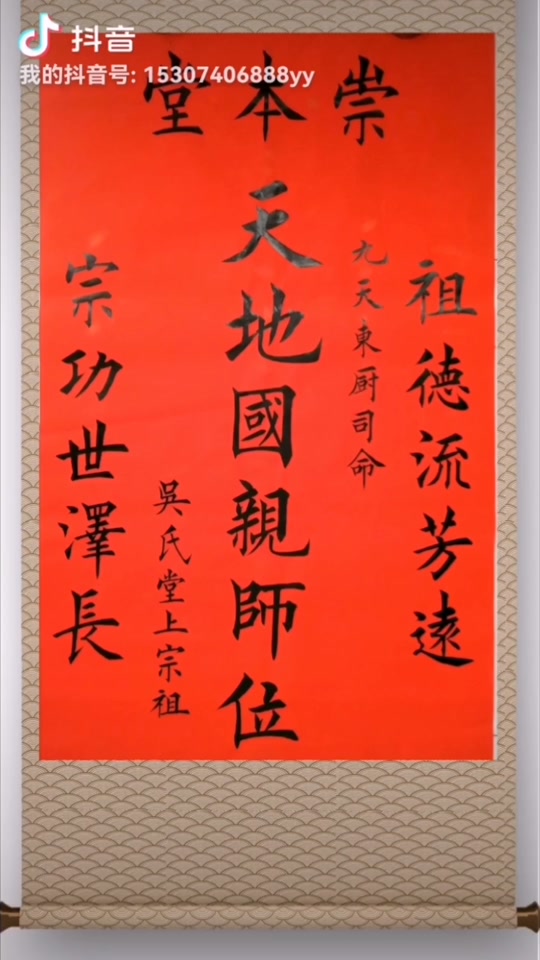 抖音
我的抖音号: 15307406888yy
崇本堂
祖德流芳遠
九天東厨司命
天地國親師位
吳氏堂上宗祖
宗功世澤長